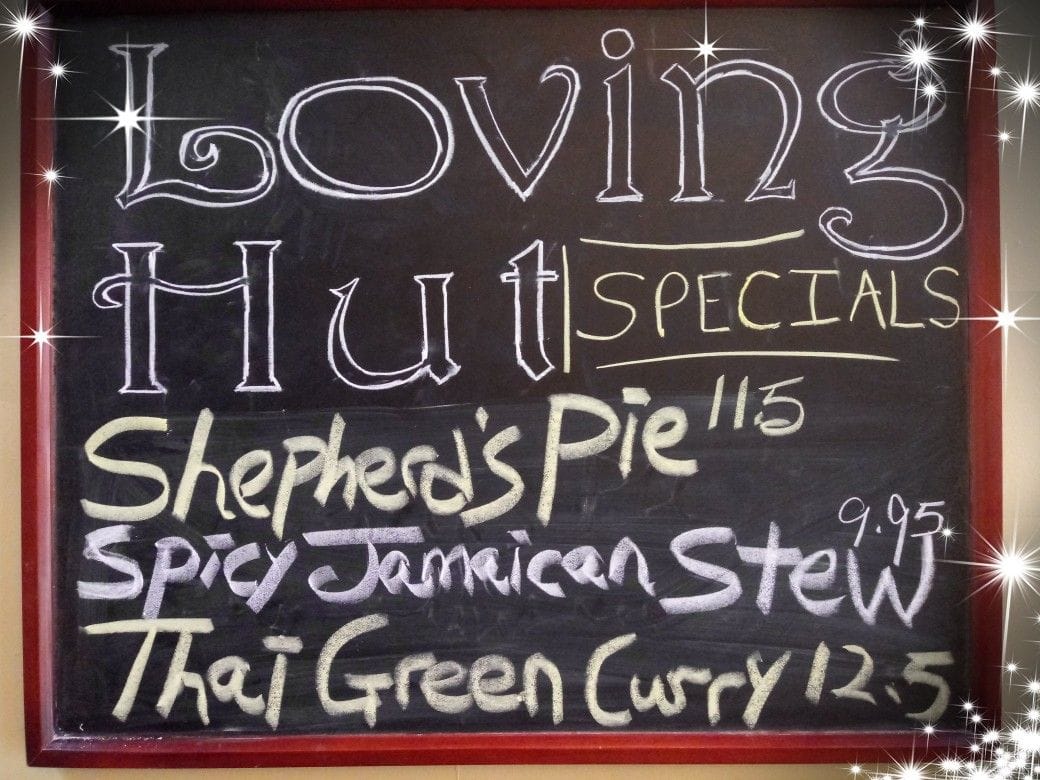 Loving
Hut SPECIALS
Shepherd's Pie 11.5
Spicy Jamaican Stew 9.95
Thai Green Curry 12.5